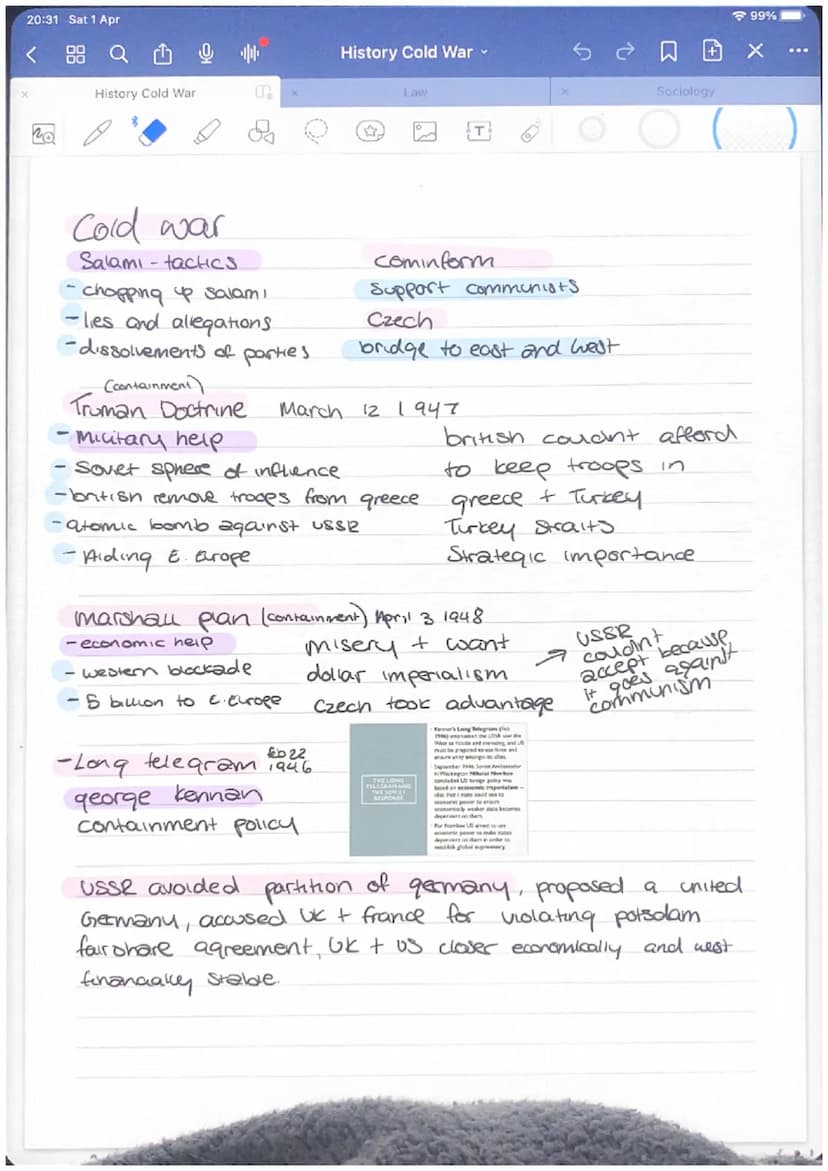 20:31 Sat 1 Apr
99%
History Cold War
History Cold War
Law
Sociology
Cold war
Salami - tactics
- chopping up salami
- lies and allegations
- dissolvements of parties
cominform
Support communists
Czech
bridge to east and west
(containment)
Truman Doctrine March 12 1947
- Military help
- Soviet sphere of influence
- british remove troops from greece
- atomic bomb against USSR
- Aiding E. Europe
british couldnt afford
to keep troops in
greece + Turkey
Turkey Straits
Strategic importance
marshall plan (containment) April 3 1948
- economic help
- western blockade
- 5 billion to E. Europe
misery + want
dollar imperialism
Czech took advantage
→ USSR
couldn't
accept because
it goes against
communism
- Long telegram Feb 22
1946
george kennan
containment policy
THE LONG
TELEGRAM AND
THE SOVIET
RESPONSE
Kennan's Long Telegram (Feb
1946)
West as hostile and menacing, and US
must be prepared to use force and
ensure unity amongst its allies.
September 1946 Soviet Ambassador
in Washington Nikolai Novikov
concluded US foreign policy was
based on economic imperialism –
economic power to ensure
economically weaker states becomes
dependent on them.
For Novikov US aimed to use
economic power to make states
dependent on them in order to
establish global supremacy.
USSR avoided partition of germany, proposed a united
Germany, accused UK + france for violating potsdam
fairshare agreement, UK + US closer economically and west
financially stable.